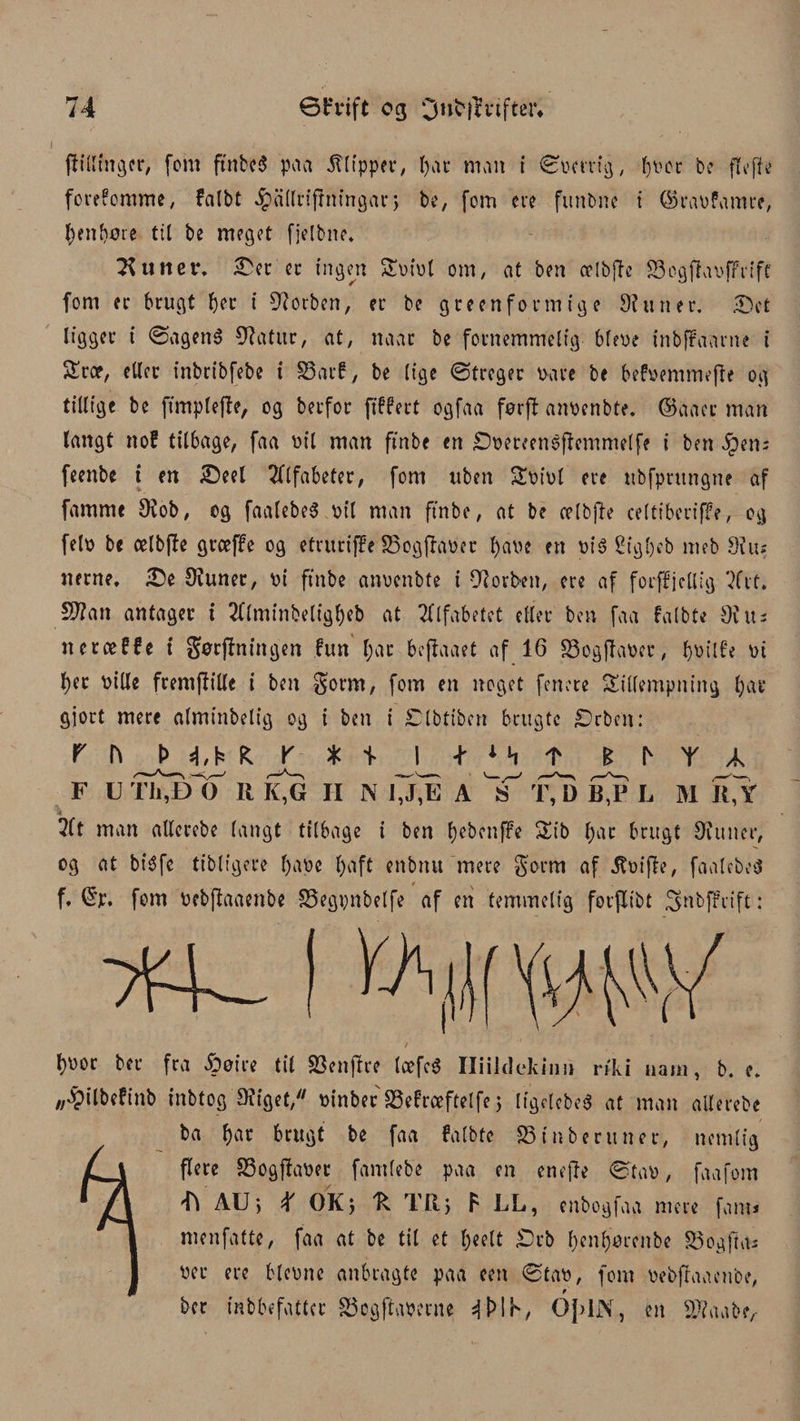 74 Skrift og Indskrifter.
stillinger, som findes paa Klipper, har man i Sverrig, hvor de fleste
forekomme, kaldt Hällristningar; de, som ere fundne i Gravkamre,
henhøre til de meget sjeldne.
Runer. Der er ingen Tvivl om, at den ældste Bogstavskrift
som er brugt her i Norden, er de greenformige Runer. Det
ligger i Sagens Natur, at, naar de fornemmelig bleve indskaarne i
Træ, eller indridsede i Bark, de lige Streger vare de bekvemmeste og
tillige de simpleste, og derfor sikkert ogsaa først anvendte. Gaaer man
langt nok tilbage, saa vil man finde en Overeensstemmelse i den Hen-
seende i en Deel Alfabeter, som uden Tvivl ere udsprungne af
samme Rod, og saaledes vil man finde, at de ældste celtiberiske, og
selv de ældste græske og etruriske Bogstaver have en vis Lighed med Ru-
nerne. De Runer, vi finde anvendte i Norden, ere af forskjellig Art.
Man antager i Almindelighed at Alfabetet eller den saa kaldte Ru-
nerække i Førstningen kun har bestaaet af 16 Bogstaver, hvilke vi
her ville fremstille i den Form, som en noget senere Tillempning har
gjort mere almindelig og i den i Oldtiden brugte Orden:
ᚠ ᚢ ᚦ ᚬ,ᚭ ᚱ ᚴ ᚼ ᚾ ᛁ ᛅ ᛋ ᛏ ᛒ ᛚ ᛘ ᛦ
F U Th,D O R K,G H N I,J,E A S T,D B,P L M R,Y
At man allerede langt tilbage i den hedenske Tid har brugt Runer,
og at disse tidligere have haft endnu mere Form af Kviste, saaledes
f. Ex. som vedstaaende Begyndelse af en temmelig forslidt Indskrift:
hvor der fra Høire til Venstre læses Hiildekinn ríki nam, d. e.
„Hildekind indtog Riget,“ vinder Bekræftelse; ligeledes at man allerede
da har brugt de saa kaldte Binderuner, nemlig
flere Bogstaver samlede paa en eneste Stav, saasom
AU; OK; TR; LL, endogsaa mere sam-
mensatte, saa at de til et heelt Ord henhørende Bogsta-
ver ere blevne anbragte paa een Stav, som vedstaaende,
der indbefatter Bogstaverne ᚬᚦᛁᚿ, OþIN, en Maade,